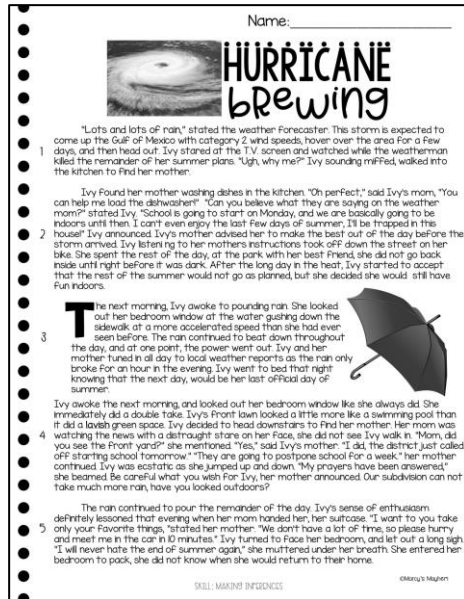 Name:
HURRICANE
bRewing
"Lots and lots of rain," stated the weather forecaster. This storm is expected to
1 come up the Gulf of Mexico with category 2 wind speeds, hover over the area for a few
days, and then head out. Ivy stared at the T.V. screen and watched while the weatherman
killed the remainder of her summer plans. "Ugh, why me?" Ivy sounding miffed, walked into
the kitchen to find her mother.
Ivy found her mother washing dishes in the kitchen. "Oh perfect," said Ivy's mom, "You
can help me load the dishwasher!" "Can you believe what they are saying on the weather
mom?" stated Ivy. "School is going to start on Monday, and we are basically going to be
2 indoors until then. I can't even enjoy the last few days of summer, I'll be trapped in this
house!" Ivy announced. Ivy's mother advised her to make the best out of the day before the
storm arrived. Ivy listening to her mothers instructions took off down the street on her
bike. She spent the rest of the day, at the park with her best friend, she did not go back
inside until right before it was dark. After the long day in the heat, Ivy started to accept
that the rest of the summer would not go as planned, but she decided she would still have
fun indoors.
The next morning, Ivy awoke to pounding rain. She looked
out her bedroom window at the water gushing down the
3 sidewalk at a more accelerated speed than she had ever
seen before. The rain continued to beat down throughout
the day, and at one point, the power went out. Ivy and her
mother tuned in all day to local weather reports as the rain only
broke for an hour in the evening. Ivy went to bed that night
knowing that the next day, would be her last official day of
summer.
Ivy awoke the next morning, and looked out her bedroom window like she always did. She
immediately did a double take. Ivy's front lawn looked a little more like a swimming pool than
it did a lavish green space. Ivy decided to head downstairs to find her mother. Her mom was
4 watching the news with a distraught stare on her face, she did not see Ivy walk in. "Mom, did
you see the front yard?" she mentioned. "Yes," said Ivy's mother. "I did, the district just called
off starting school tomorrow." "They are going to postpone school for a week." her mother
continued. Ivy was ecstatic as she jumped up and down. "My prayers have been answered,"
she beamed. Be careful what you wish for Ivy, her mother announced. Our subdivision can not
take much more rain, have you looked outdoors?
The rain continued to pour the remainder of the day. Ivy's sense of enthusiasm
definitely lessoned that evening when her mom handed her, her suitcase. "I want you to take
5 only your favorite things," stated her mother. "We don't have a lot of time, so please hurry
and meet me in the car in 10 minutes." Ivy turned to face her bedroom, and let out a long sigh.
"I will never hate the end of summer again," she muttered under her breath. She entered her
bedroom to pack, she did not know when she would return to their home.
©Marcy's Mayhem
SKILL: MAKING INFERENCES